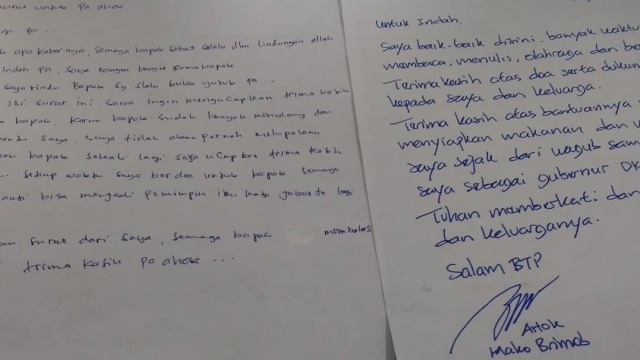 surat untuk Pa ahok
pa..
apa kabarnya, semoga bapak sehat selalu dlm lindungan allah
Indah Pa, saya kangen banget sama bapak
saya rindu Bapak sy slalu buka yutub pa...
isi surat ini saya ingin mengucapkan trima kasih
bapak, karna bapak sudah banyak menolong dan
saya, saya tidak akan pernah melupakan
bapak sekali lagi saya ucapkan trima kasih
setiap waktu saya berdoa untuk bapak semoga
bisa menjadi pemimpin ibu kota jakarta lagi
surat dari saya, semoga bapak membalas
trima kasih pa ahok...
Untuk Indah.
Saya baik-baik disini, banyak waktu
membaca, menulis, olahraga dan
Terima kasih atas doa serta
kepada saya dan keluarga.
Terima kasih atas bantuannya
menyiapkan makanan dan
saya sejak dari wagub
saya sebagai gubernur DK
Tuhan memberkati
dan keluarganya.
Salam BTP
Ahok
Mako Brimob